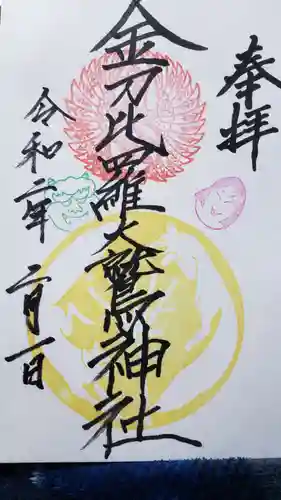 奉拝
金刀比羅大鷲神社
令和二年
二月一日